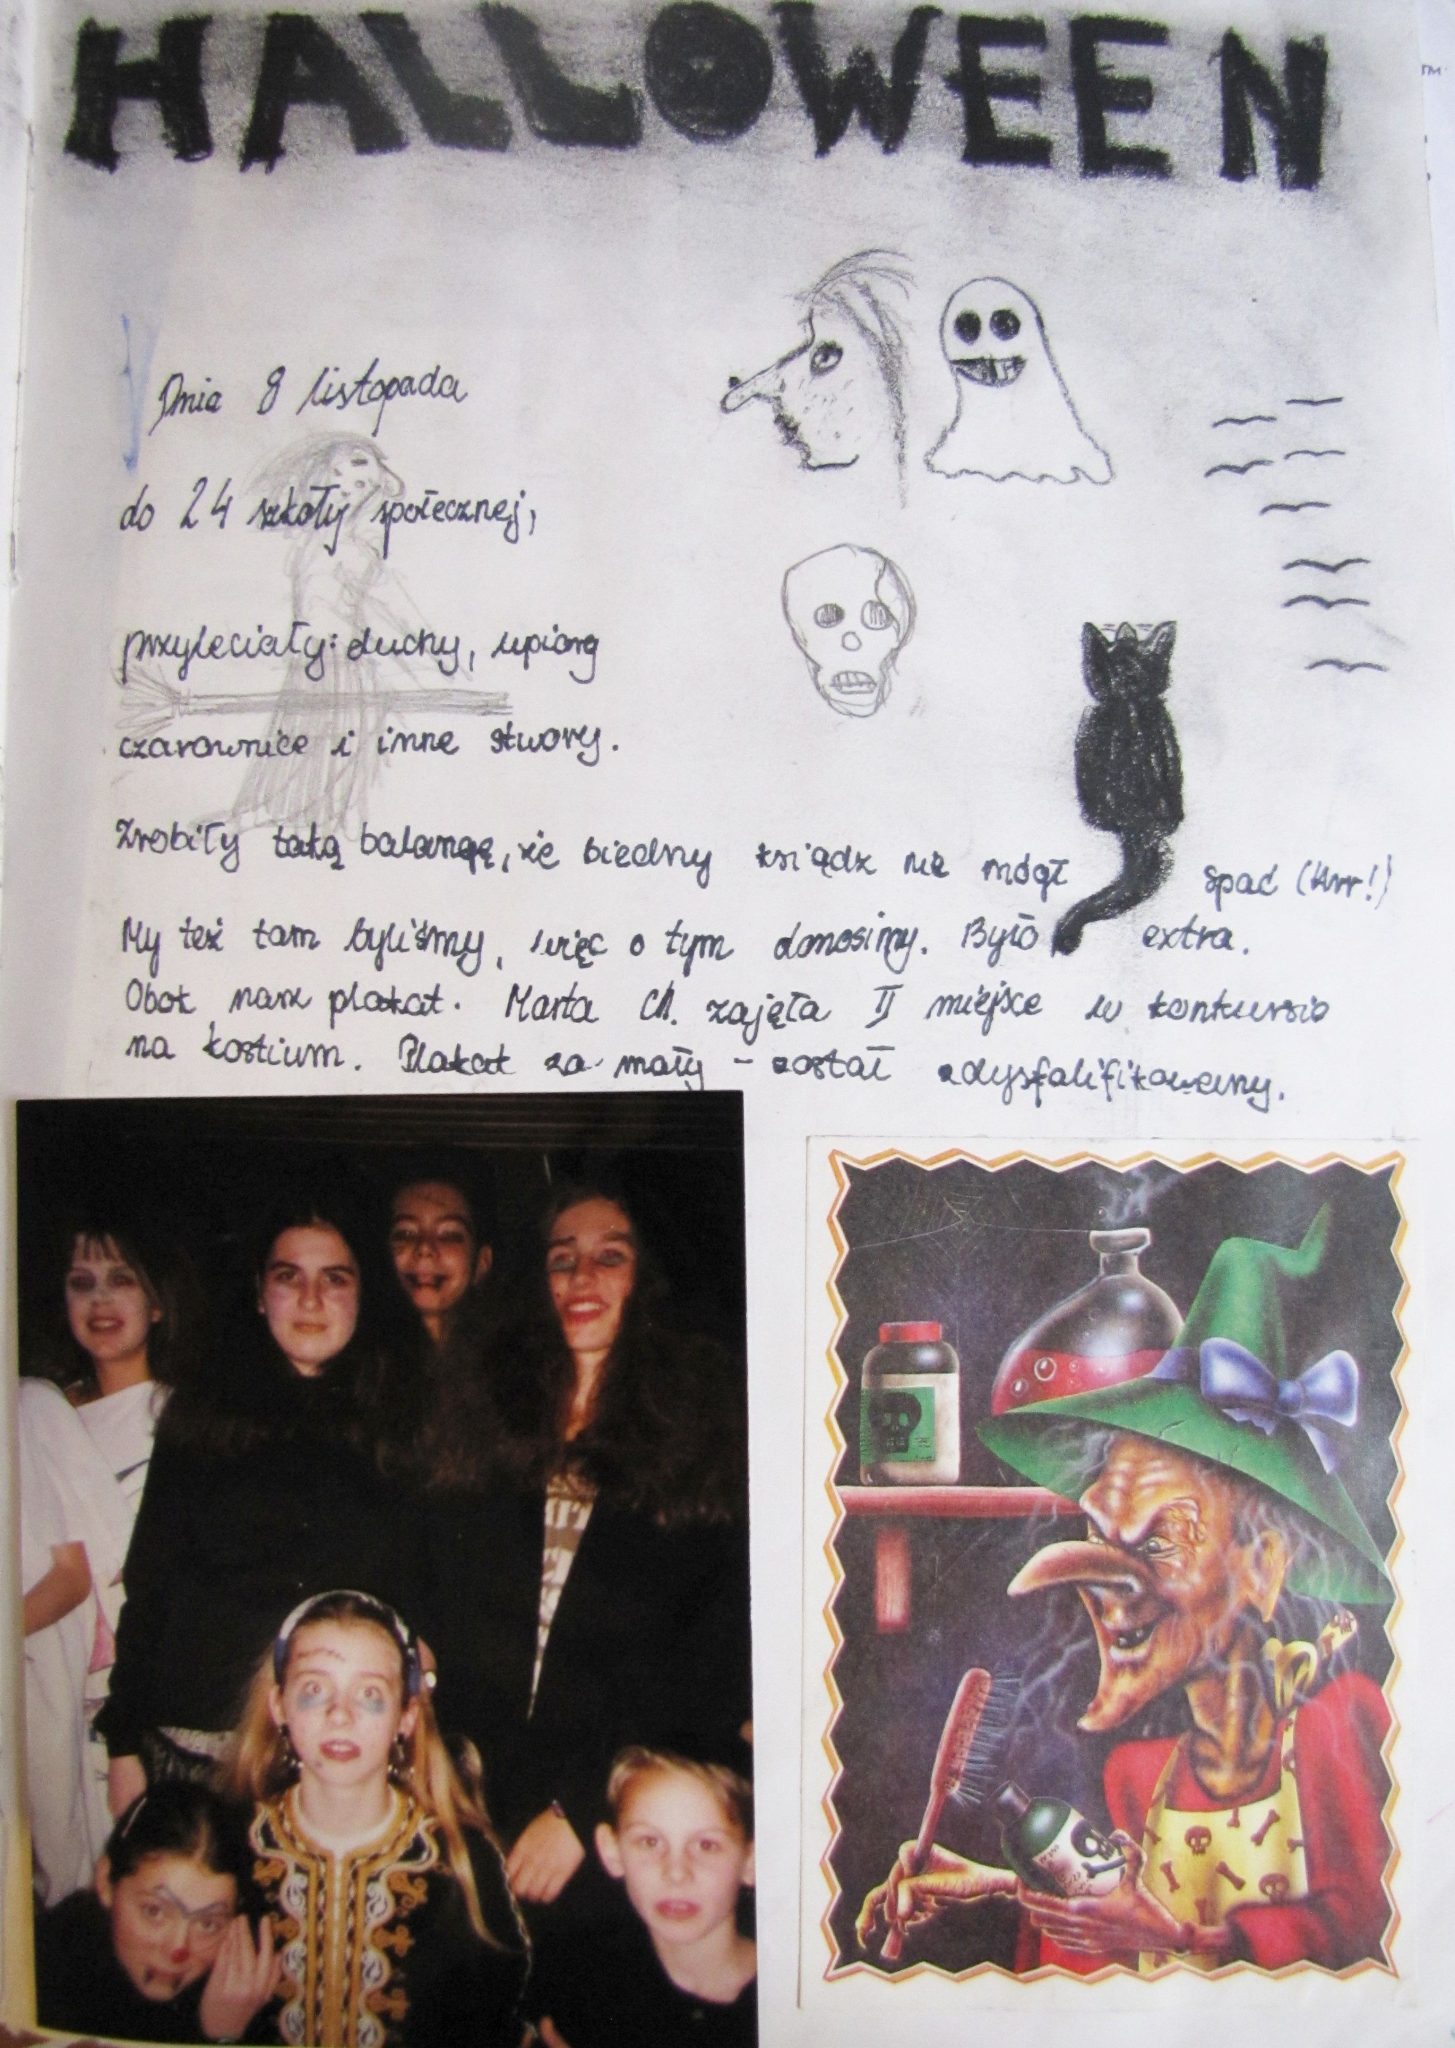 HALLOWEEN
Dnia 8 listopada
do 24 szkoły społecznej,
przyleciały: duchy, upiory
czarownice i inne stwory.
Zrobiły taką balangę, że biedny ksiądz nie mógł spać (Hrr!)
My też tam byliśmy, więc o tym donosimy. Było extra.
Obok nasz plakat. Marta Ch. zajęła II miejsce w konkursie
na kostium. Plakat za mały – został zdysfalifikowany.